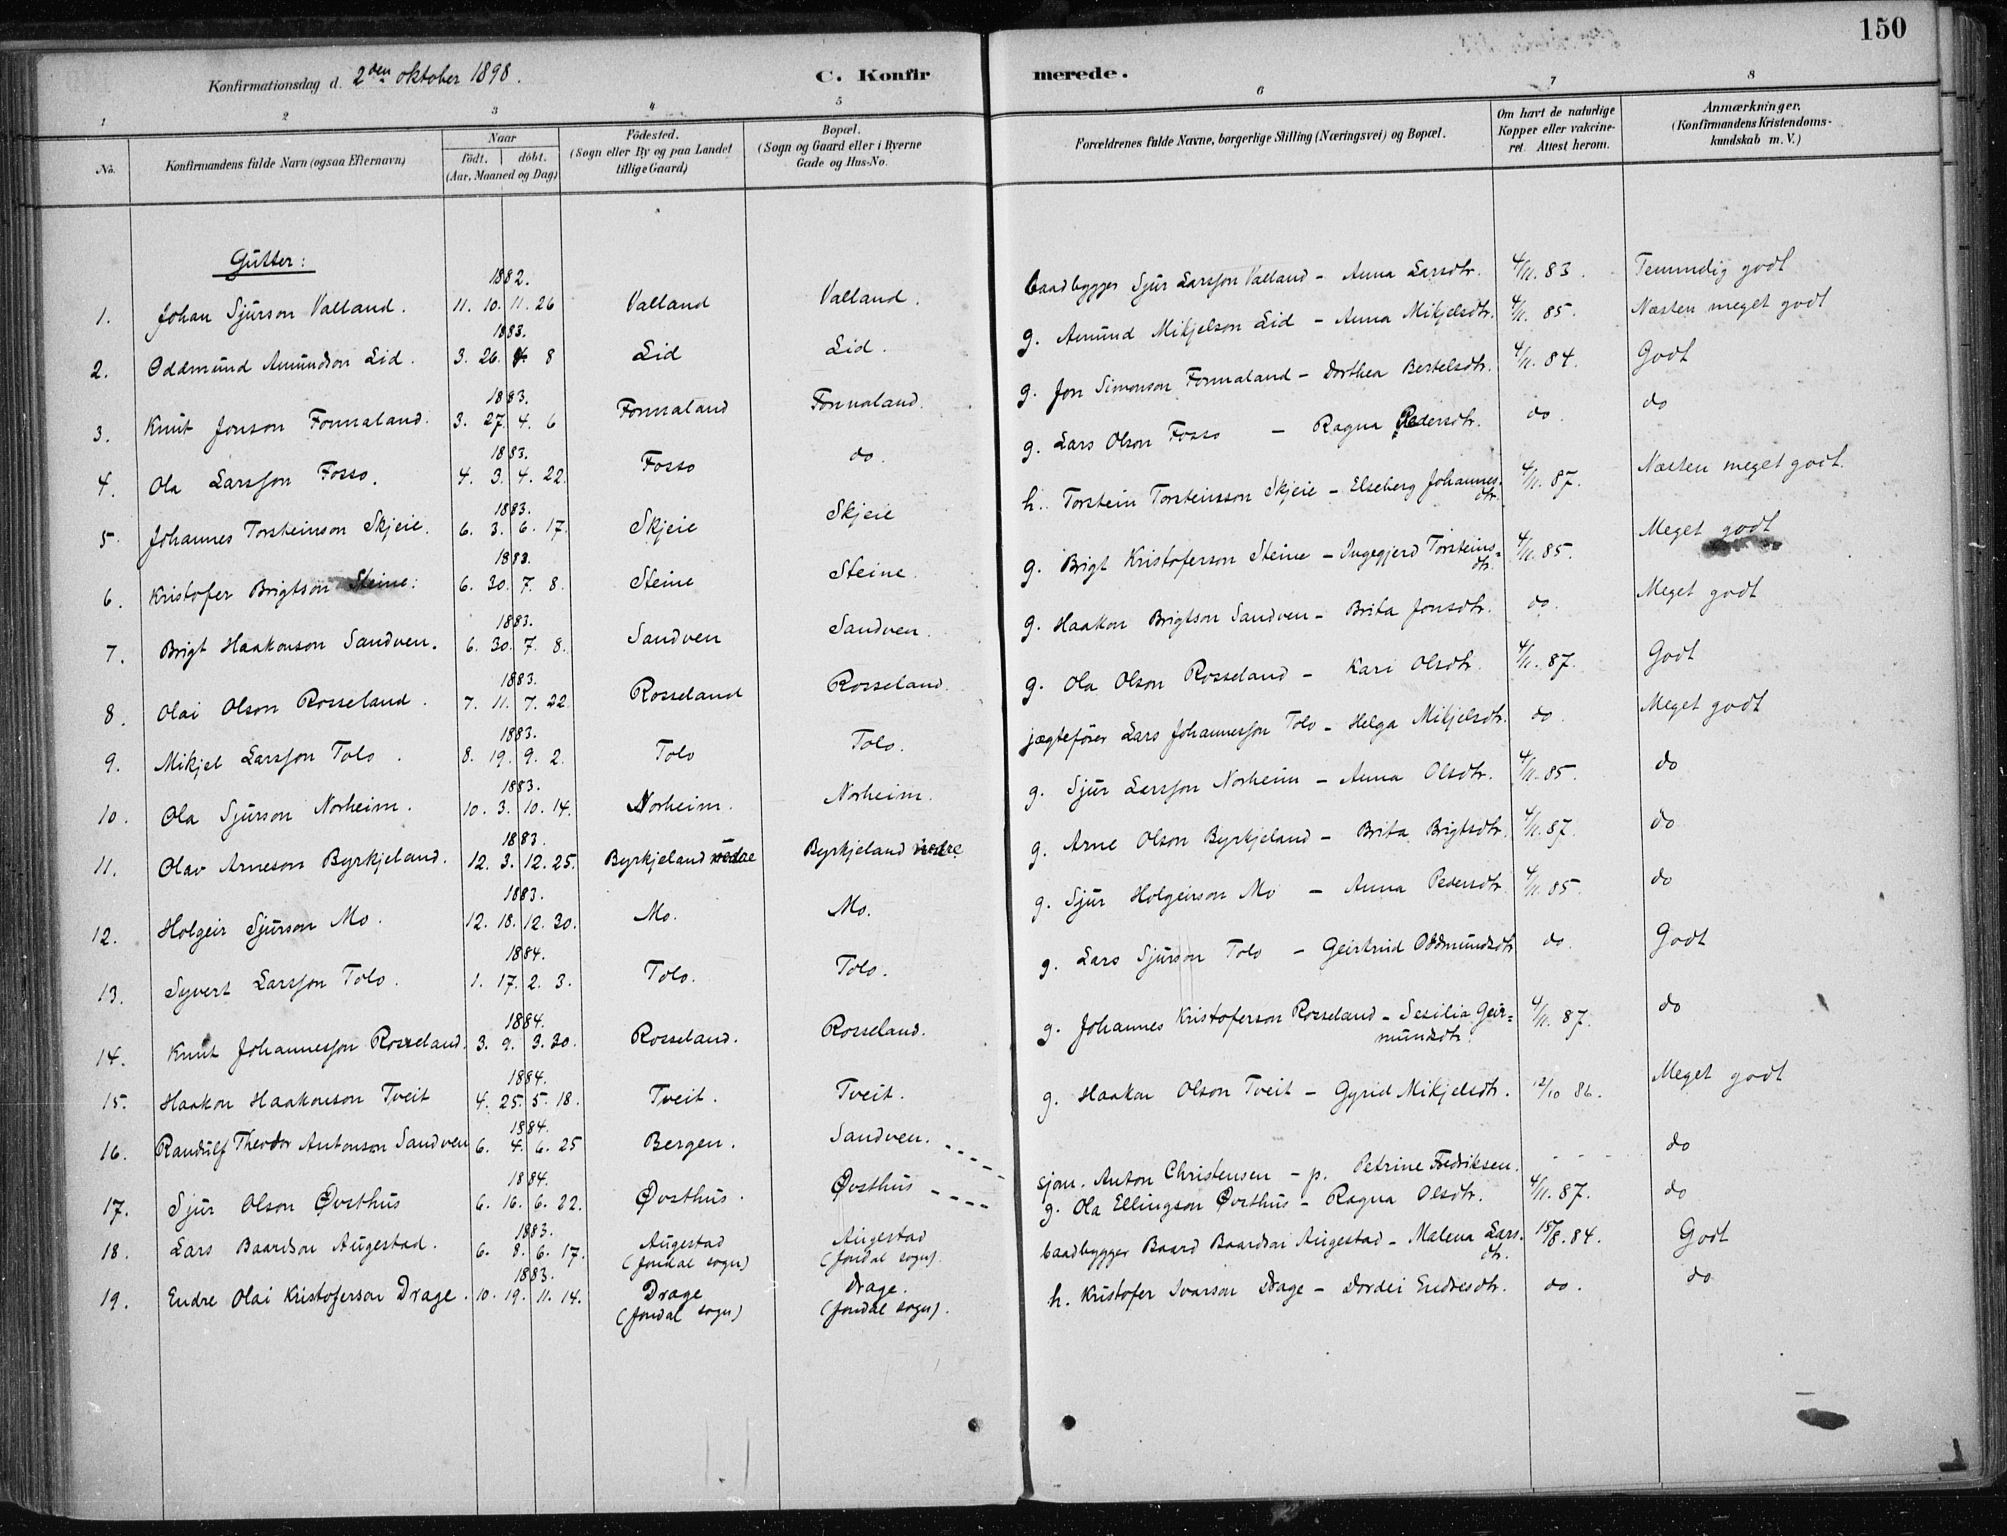 150
Konfirmationsdag d. 2den oktober 1898.
C. Konfirmerede.
1 2 3 4 5 6 7 8
No.
Konfirmandens fulde Navn (ogsaa Efternavn)
Naar
født. døbt.
(Aar, Maaned og Dag)
Fødested.
(Sogn eller By og paa Landet
tillige Gaard)
Bopæl.
(Sogn og Gaard eller i Byerne
Gade og Hus-No.
Forældrenes fulde Navne, borgerlige Stilling (Næringsvei) og Bopæl.
Om havt de naturlige
Kopper eller vakcine-
ret. Attest herom.
Anmærkninger.
(Konfirmandens Kristendoms-
kundskab m. V.)
Gutter:
1882.
1. Johan Sjurson Valland. 11. 10. 11. 26 Valland Valland. baadbygger Sjur Larsson Valland - Anna Larsdtr. 4/11. 83. Temmelig godt
1883.
2. Oddmund Amundson Lid. 3. 26. 4. 8 Lid Lid. g. Amund Mikjelson Lid - Anna Mikjelsdtr. 4/11. 85. Næsten meget godt
1883.
3. Knut Jonson Fonnaland. 3. 27. 4. 6 Fonnaland Fonnaland. g. Jon Simonson Fonnaland - Dorthea Bertelsdtr. 4/11. 84. Godt
1883.
4. Ola Larsson Fosso. 4. 3. 4. 22. Fosso do. g. Lars Olson Fosso - Ragna Pedersdtr. do do
1883.
5. Johannes Torsteinson Skjeie. 6. 3. 6. 17. Skjeie Skjeie h. Torstein Torsteinsson Skjeie - Elseberg Johannes-
dtr. 4/11. 87. Næsten meget godt.
1883.
6. Kristofer Brigtson Steine. 6. 30. 7. 8. Steine Steine. g. Brigt Kristoferson Steine - Ingegjerd Torsteins-
dtr. 4/11. 85. Meget godt
1883.
7. Brigt Haakonson Sandven. 6. 30. 7. 8. Sandven Sandven. g. Haakon Brigtson Sandven - Brita Jonsdtr. do. Meget godt
1883.
8. Olai Olson Rosseland. 7. 11. 7. 22 Rosseland Rosseland. g. Ola Olson Rosseland - Kari Olsdtr. 4/11. 87. Godt
1883.
9. Mikjel Larsson Tolo. 8. 19. 9. 2. Tolo Tolo. jægtefører Lars Johannesson Tolo - Helga Mikjelsdtr. do. Meget godt
1883.
10. Ola Sjurson Norheim. 10. 3. 10. 14. Norheim. Norheim. g. Sjur Larsson Norheim - Anna Olsdtr. 4/11. 85. do
1883.
11. Olav Arneson Byrkjeland. 12. 3. 12. 25. Byrkjeland nedre Byrkjeland nedre g. Arne Olson Byrkjeland - Brita Brigtsdtr. 4/11. 87. do
1883.
12. Holgeir Sjurson Mo. 12. 18. 12. 30. Mo. Mo. g. Sjur Holgeirson Mo - Anna Pedersdtr. 4/11. 85. do
1884.
13. Syvert Larsson Tolo. 1. 17. 2. 3. Tolo. Tolo. g. Lars Sjurson Tolo - Geirtrud Oddmundsdtr do. Godt
1884.
14. Knut Johannesson Rosseland. 3. 9. 3. 30. Rosseland. Rosseland. g. Johannes Kristoferson Rosseland - Sesilia Geir-
mundsdtr. 4/11. 87. do
1884.
15. Haakon Haakonson Tveit 4. 25. 5. 18. Tveit. Tveit. g. Haakon Olson Tveit - Gyrid Mikjelsdtr. 12/10 86. Meget godt
1884.
16. Randulf Theodor Antonson Sandven 6. 4. 6. 25 Bergen. Sandven. sjøm. Anton Christensen - p. Petrine Fredriksen. - - - do
1884.
17. Sjur Olson Øvsthus 6. 16. 6. 22. Øvsthus. Øvsthus g. Ola Ellingson Øvsthus - Ragna Olsdtr. 4/11. 87. do
1883.
18. Lars Baardson Augestad. 6. 8. 6. 17. Augestad Augestad baadbygger Baard Baardson Augestad - Malena Lars-
(Jondal sogn) (Jondal sogn). dtr. 15/8. 84. Godt
1883.
19. Endre Olai Kristoferson Drage. 10. 19. 11. 14. Drage Drage. h. Kristofer Ivarson Drage - Dordei Endresdtr. do. do
(Jondal sogn) (Jondal sogn).